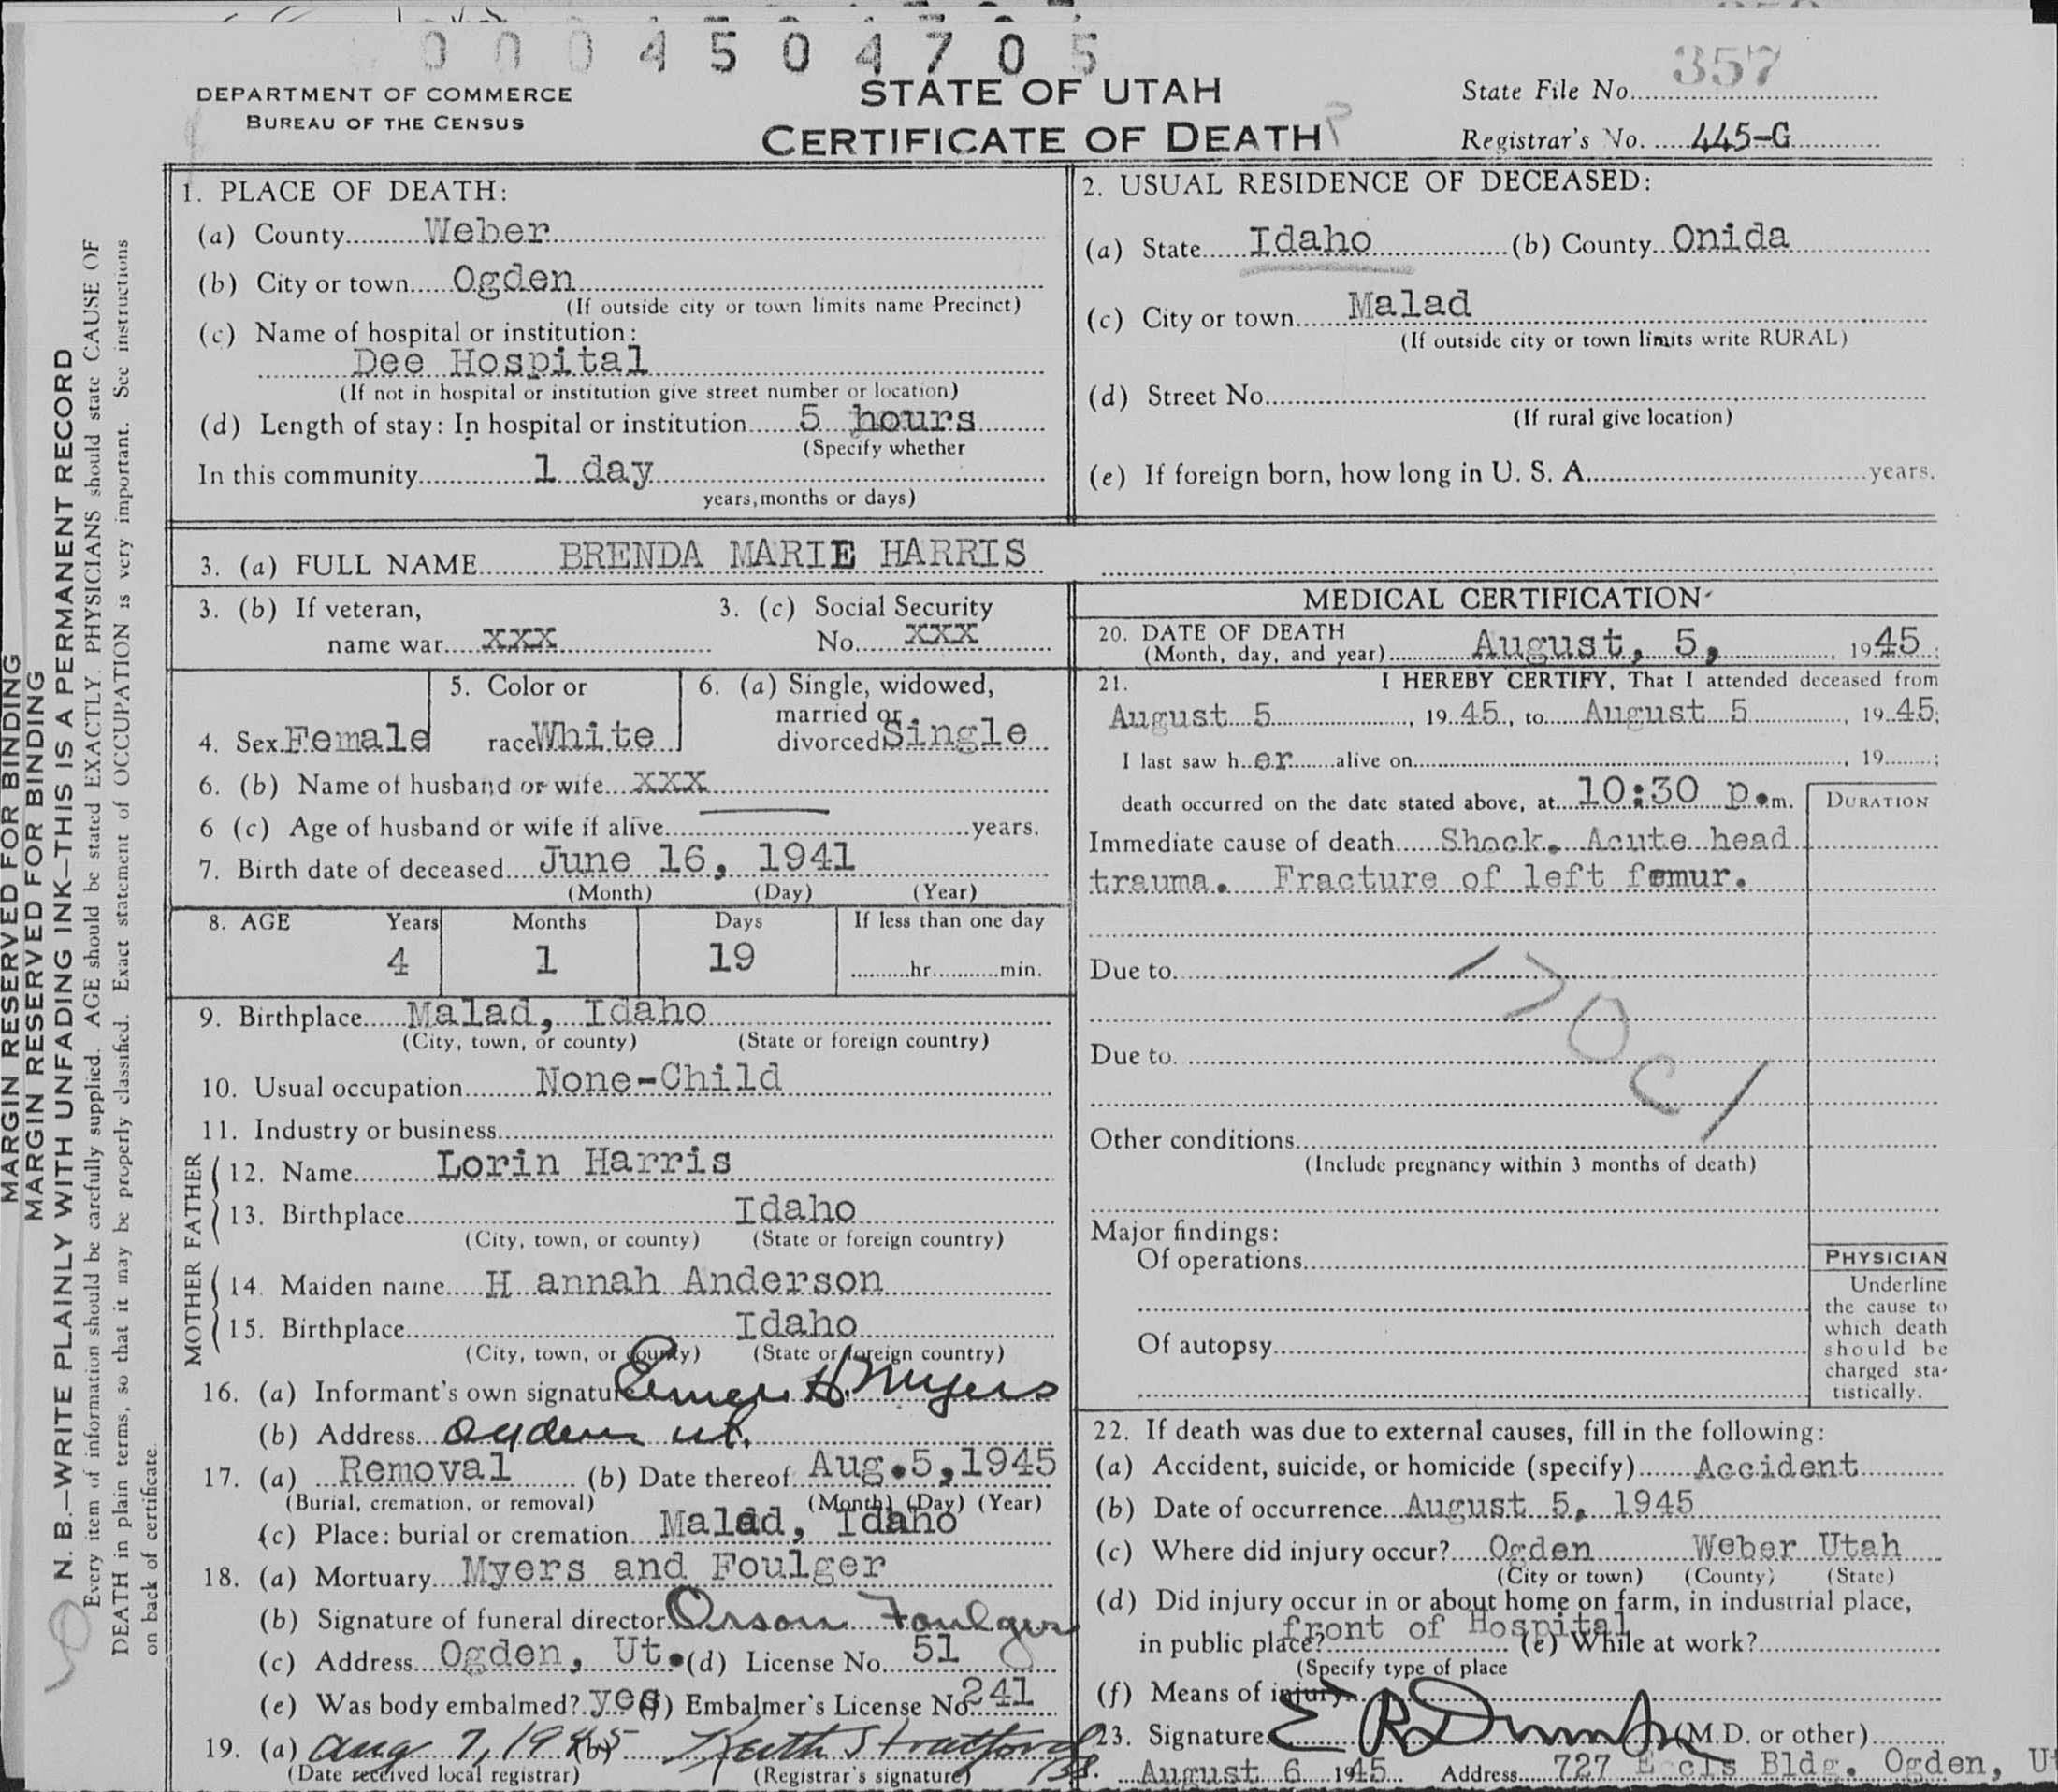 0 0 0 4 5 0 4 7 0 5
357
DEPARTMENT OF COMMERCE
BUREAU OF THE CENSUS
STATE OF UTAH
CERTIFICATE OF DEATH
State File No.
Registrar's No. 445-G
MARGIN RESERVED FOR BINDING
MARGIN RESERVED FOR BINDING
N. B.—WRITE PLAINLY WITH UNFADING INK—THIS IS A PERMANENT RECORD
Every item of information should be carefully supplied. AGE should be stated EXACTLY. PHYSICIANS should state CAUSE OF
DEATH in plain terms, so that it may be properly classified. Exact statement of OCCUPATION is very important. See instructions
on back of certificate.
1. PLACE OF DEATH:
(a) County Weber
(b) City or town Ogden
(If outside city or town limits name Precinct)
(c) Name of hospital or institution:
Dee Hospital
(If not in hospital or institution give street number or location)
(d) Length of stay: In hospital or institution 5 hours
(Specify whether
In this community 1 day
years, months or days)
2. USUAL RESIDENCE OF DECEASED:
(a) State Idaho (b) County Onida
(c) City or town Malad
(If outside city or town limits write RURAL)
(d) Street No.
(If rural give location)
(e) If foreign born, how long in U. S. A. years.
3. (a) FULL NAME BRENDA MARIE HARRIS
3. (b) If veteran,
name war XXX
3. (c) Social Security
No. XXX
4. Sex Female
5. Color or
race White
6. (a) Single, widowed,
married or
divorced Single
6. (b) Name of husband or wife XXX
6 (c) Age of husband or wife if alive years.
7. Birth date of deceased June 16, 1941
(Month) (Day) (Year)
8. AGE Years Months Days If less than one day
4 1 19 hr. min.
9. Birthplace Malad, Idaho
(City, town, or county) (State or foreign country)
10. Usual occupation None-Child
11. Industry or business
FATHER
12. Name Lorin Harris
13. Birthplace Idaho
(City, town, or county) (State or foreign country)
MOTHER
14. Maiden name H annah Anderson
15. Birthplace Idaho
(City, town, or county) (State or foreign country)
16. (a) Informant's own signature H. Myers
(b) Address Ogden Ut.
17. (a) Removal (b) Date thereof Aug. 5, 1945
(Burial, cremation, or removal) (Month) (Day) (Year)
(c) Place: burial or cremation Malad, Idaho
18. (a) Mortuary Myers and Foulger
(b) Signature of funeral director Orson Foulger
(c) Address Ogden, Ut. (d) License No. 51
(e) Was body embalmed? yes (f) Embalmer's License No. 241
19. (a) Aug 7, 1945 (b) Keith Stratford
(Date received local registrar) (Registrar's signature)
MEDICAL CERTIFICATION
20. DATE OF DEATH
(Month, day, and year) August, 5, 1945;
21. I HEREBY CERTIFY, That I attended deceased from
August 5, 1945, to August 5, 1945;
I last saw her alive on, 19 ;
death occurred on the date stated above, at 10:30 p.m.
DURATION
Immediate cause of death Shock. Acute head
trauma. Fracture of left femur.
Due to
Due to
Other conditions
(Include pregnancy within 3 months of death)
Major findings:
Of operations
Of autopsy
PHYSICIAN
Underline
the cause to
which death
should be
charged sta-
tistically.
22. If death was due to external causes, fill in the following:
(a) Accident, suicide, or homicide (specify) Accident
(b) Date of occurrence August 5, 1945
(c) Where did injury occur? Ogden Weber Utah
(City or town) (County) (State)
(d) Did injury occur in or about home on farm, in industrial place,
in public place? front of Hospital (e) While at work?
(Specify type of place
(f) Means of injury
23. Signature E R (M.D. or other)
August 6 1945 Address 727 Eccls Bldg. Ogden, Ut